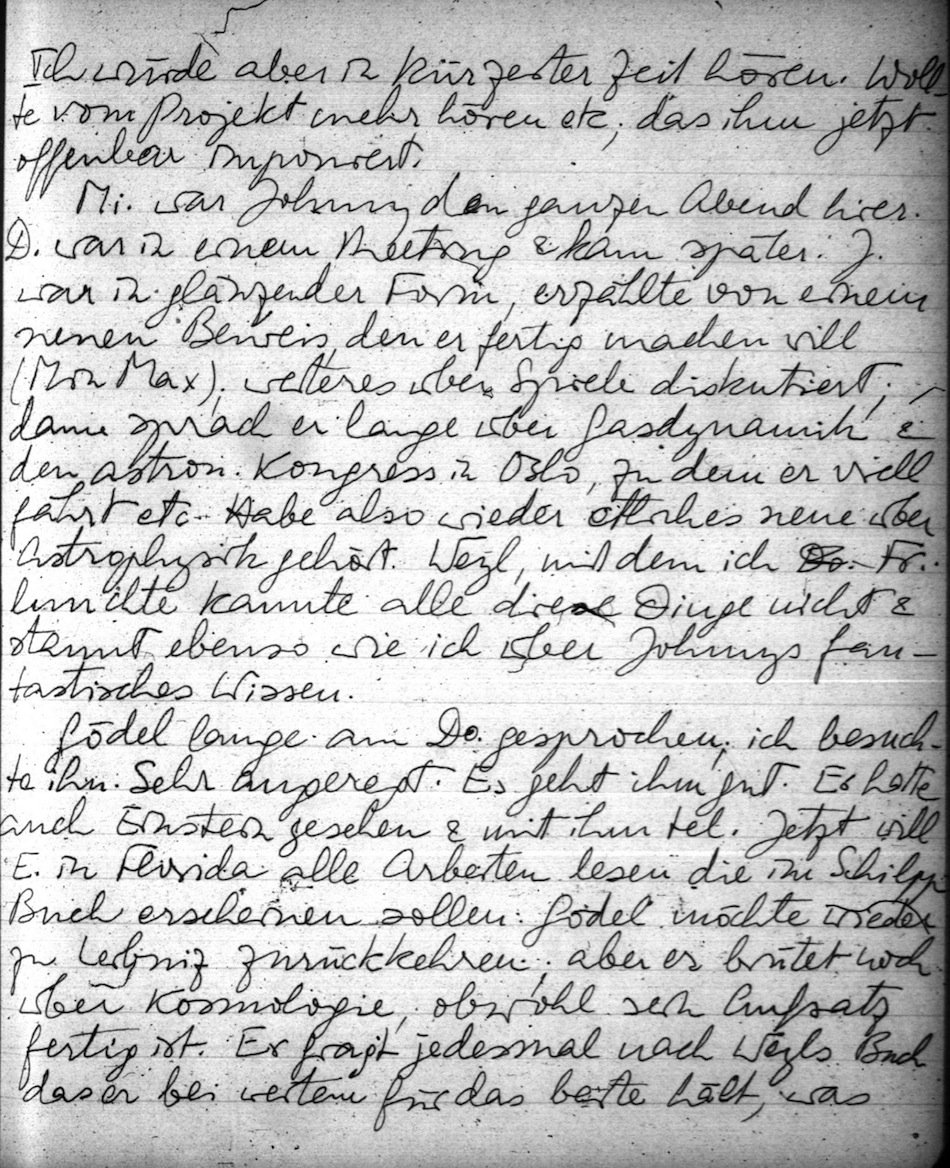 Ich würde aber in kürzester Zeit hören. Woll-
te vom Projekt mehr hören etc, das ihm jetzt
offenbar imponiert.
Mi. war Johnny den ganzen Abend hier.
D. war in einem Meeting & kam später. J.
war in glänzender Form, erzählte von einem
neuen Beweis, den er fertig machen will
(Min Max), weiteres über Spiele diskutiert;
dann sprach er lange über Gasdynamik &
den astron. Kongress in Oslo, zu dem er viell
fährt etc. Habe also wieder etliches neue über
Astrophysik gehört. Weyl, mit dem ich Fr.
lunchte kannte alle diese Dinge nicht &
staunt ebenso wie ich über Johnnys fan-
tastisches Wissen.
Gödel lange am Do. gesprochen; ich besuch-
te ihn. Sehr angeregt. Es geht ihm gut. Er hatte
auch Einstein gesehen & mit ihm tel. Jetzt will
E. in Florida alle Arbeiten lesen die im Schilpp
Buch erscheinen sollen. Gödel möchte wieder
zu Leibniz zurückkehren; aber er brütet noch
über Kosmologie, obwohl sein Aufsatz
fertig ist. Er fragt jedesmal nach Weyls Buch
das er bei weitem für das beste hält, was